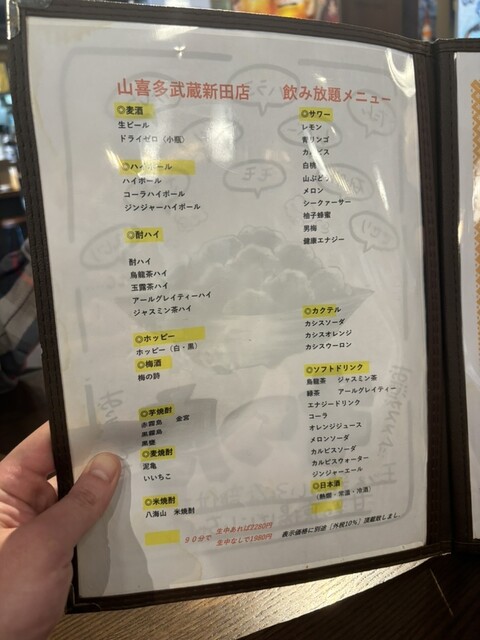 山喜多武蔵新田店　飲み放題メニュー
◎麦酒
生ビール
ドライゼロ（小瓶）
◎ハイボール
ハイボール
コーラハイボール
ジンジャーハイボール
◎酎ハイ
酎ハイ
烏龍茶ハイ
玉露茶ハイ
アールグレイティーハイ
ジャスミン茶ハイ
◎ホッピー
ホッピー（白・黒）
◎梅酒
梅の詩
◎芋焼酎
赤霧島　金宮
黒霧島
黒穂
◎麦焼酎
泥亀
いいちこ
◎米焼酎
八海山　米焼酎
◎サワー
レモン
青リンゴ
カルピス
白桃
山ぶどう
メロン
シークァーサー
柚子蜂蜜
男梅
健康エナジー
◎カクテル
カシスソーダ
カシスオレンジ
カシスウーロン
◎ソフトドリンク
烏龍茶　ジャスミン茶
緑茶　アールグレイティー
エナジードリンク
コーラ
オレンジジュース
メロンソーダ
カルピスソーダ
カルピスウォーター
ジンジャーエール
◎日本酒
（熱燗・常温・冷酒）
９０分で　生中あれば2280円
生中なしで1980円
表示価格に別途「外税10％」頂戴致します。